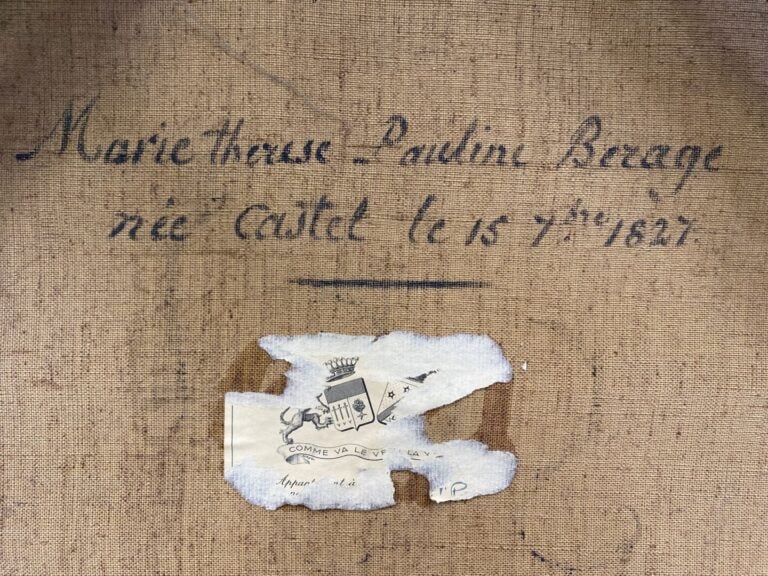 Marie therese Pauline Berage
née Castet le 15 7bre 1827.
COMME VA LE
Appar nt à
P